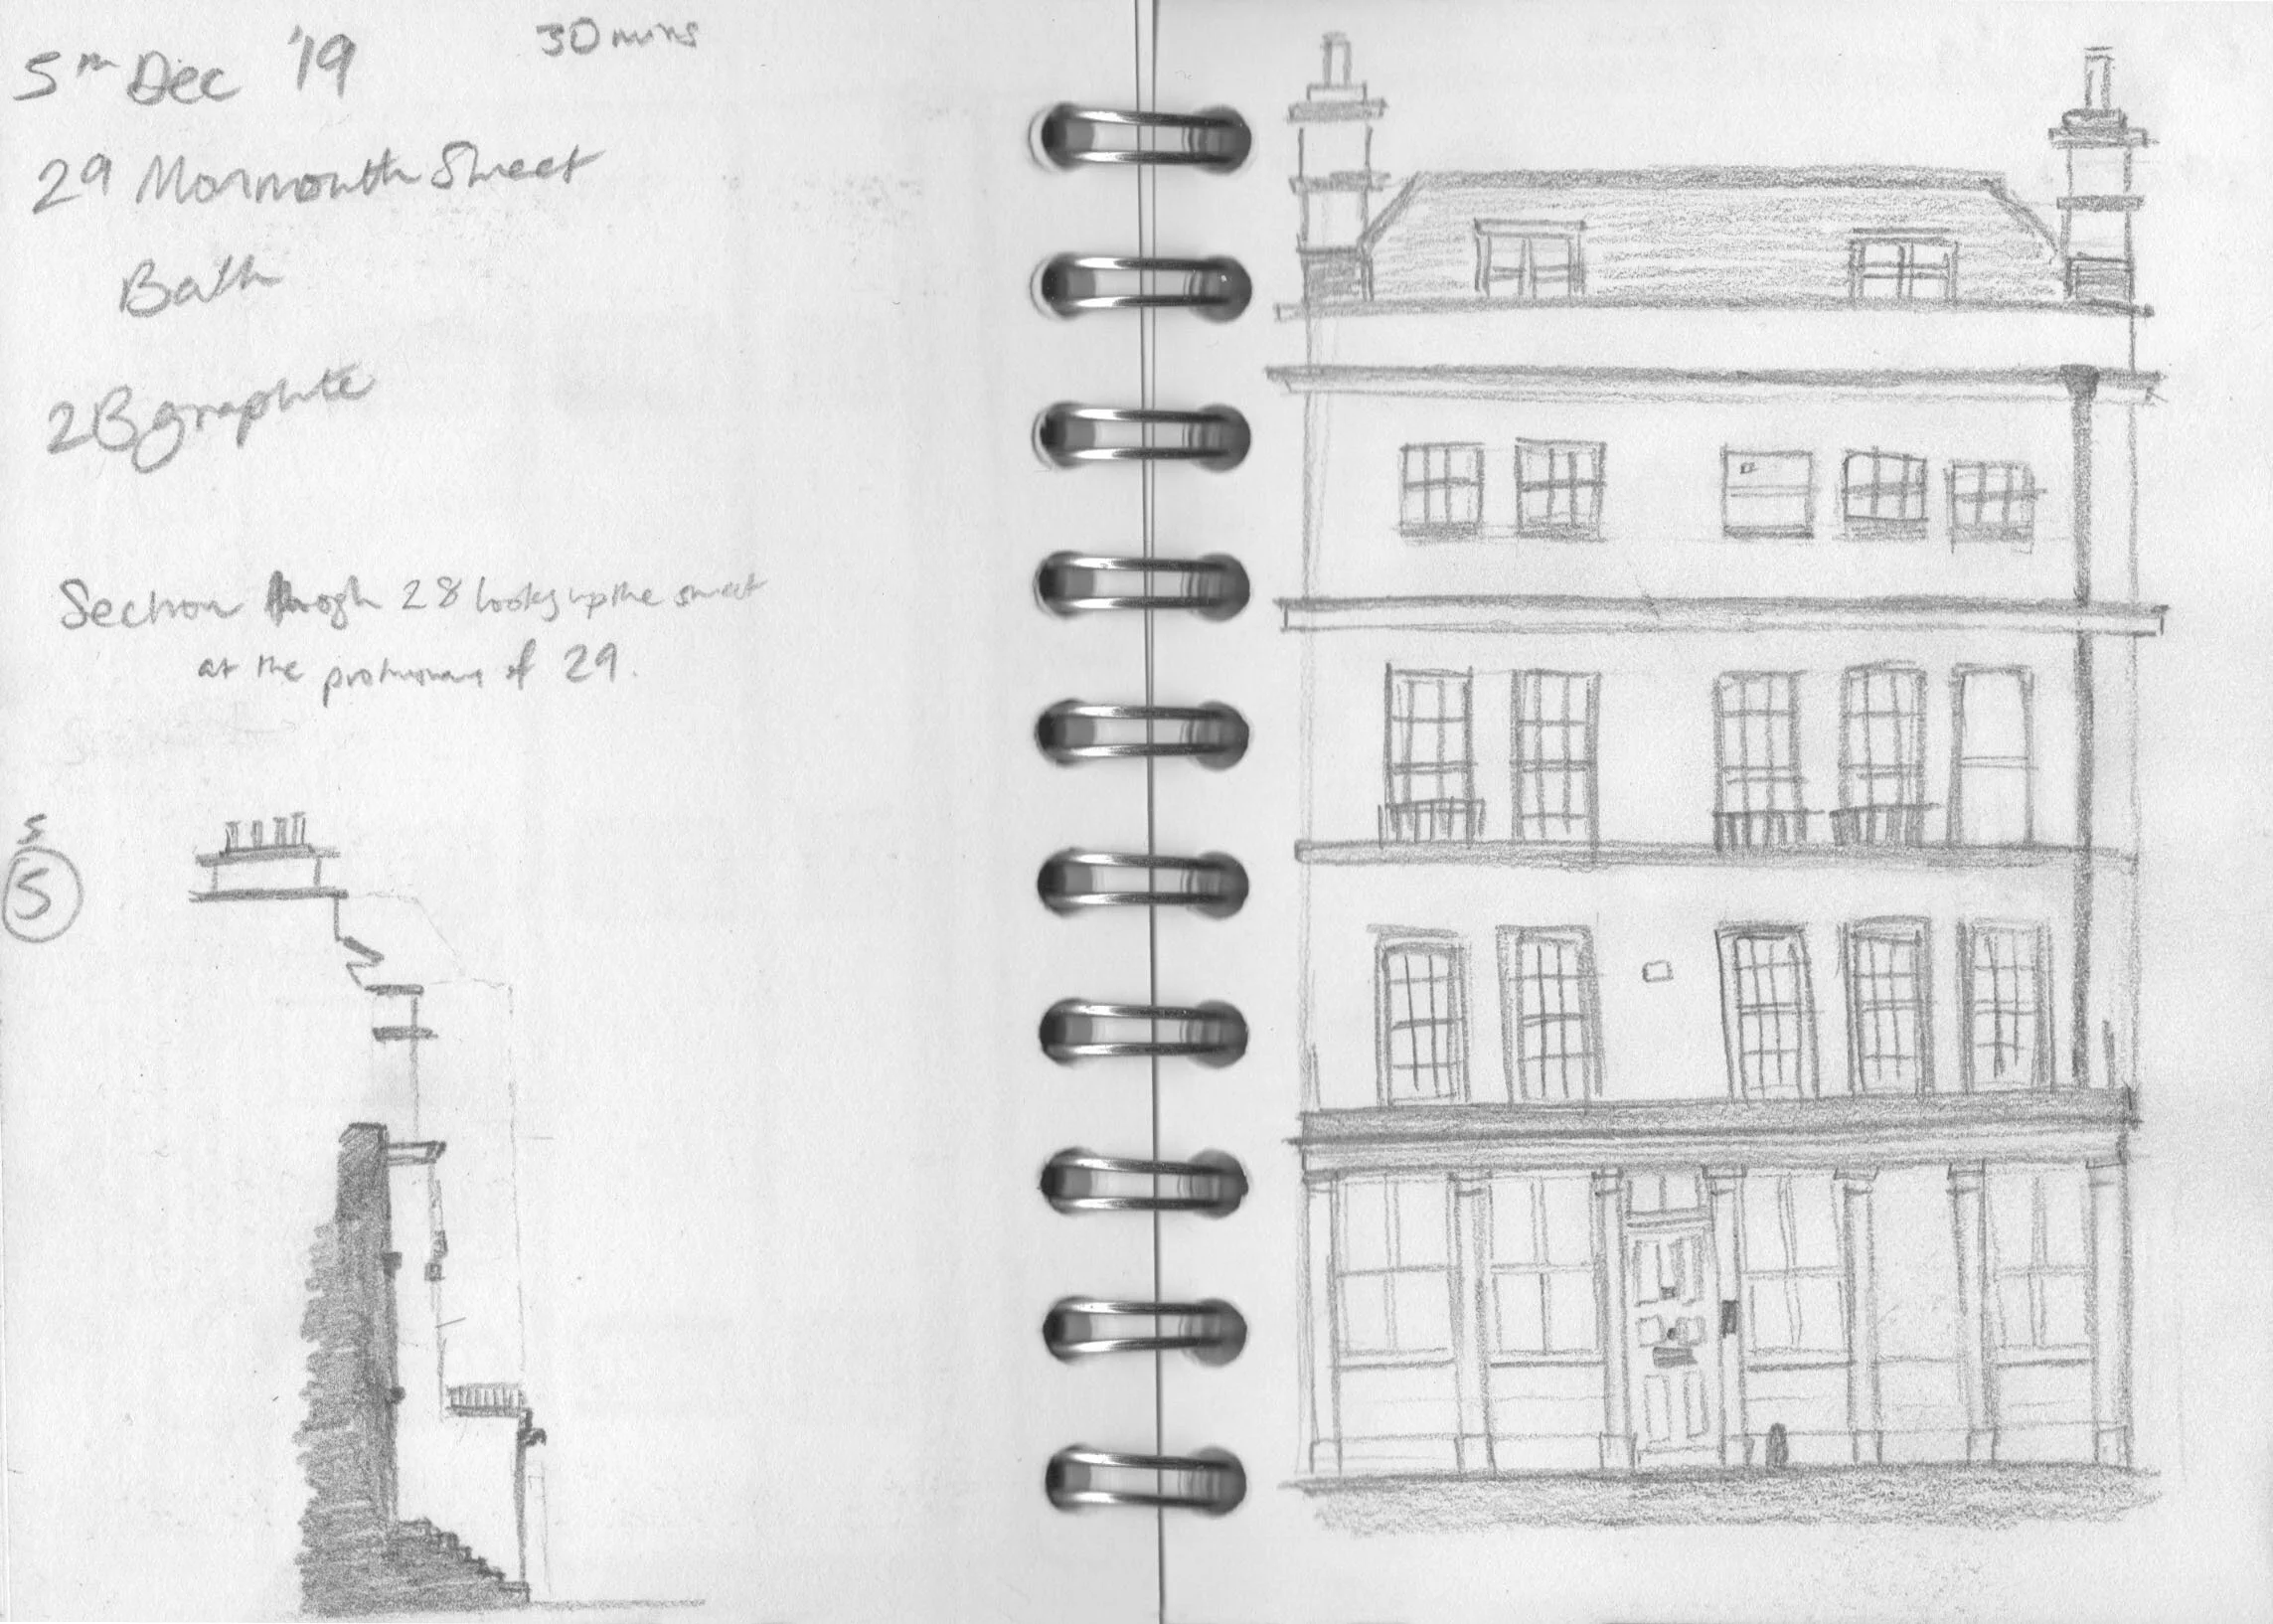 5th Dec '19
30 mins
29 Monmouth Street
Bath
2B graphite
Section through 28 looking up the street
at the protrusions of 29.
5
5